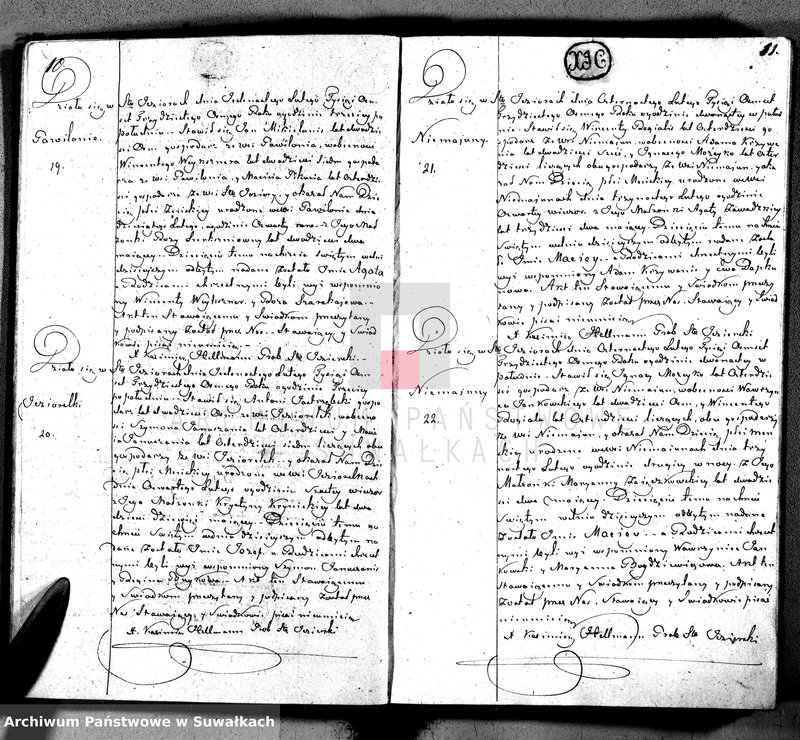 10.
Działo się w
Pawiłonie.
19.
Stę Jeziorach dnia Jedenastego Lutego Tysiąc Ośm
set Trzydziestego Ósmego Roku o godzinie trzeciey po
południu Stawił się Jan lat dwadzie
ścia Ośm gospodarz z wsi Pawiłonia, w obecności
Wincentego lat dwadzieścia siedm gospoda
rza z wsi Pawiłonia, y Macieia lat czterdzie
ści gospodarza ze wsi y okazał Nam Dzie
cię płci Żeńskiey urodzone w wsi Pawiłonie dnia
dziewiątego Lutego o godzinie czwarty rano z Jego Mał
żonki lat dwadzieścia dwa
maiący. Dziecięciu temu na chrzcie świętym w dniu
dzisieyszym odbytym nadane Zostało Imie Agata
a Rodzicami chrzestnemi byli, wyż wspomnio
ny Wincenty y
Akt ten Stawaiącemu y Świadkom przeczytany
y podpisany Został przez Nas. Stawaiący y Świad
kowie pisać nieumieią
X. Kazimierz Hellmann Prob. Stę Jezierski
Działo się w
Jeziorelki
20.
Stę Jeziorach dnia Jedenastego Lutego Tysiąc Ośm
set Trzydziestego Ósmego Roku o godzinie Trzeciey
po południu. Stawił się Antoni Jastrzębski gospo
darz lat dwadzieścia Ośm z wsi Jeziorelk, w obecno
ści Szymona Januszania lat Czterdzieści y
Januszania lat Czterdzieści siedm liczących obu
gospodarzy ze wsi Jeziorelk y okazał Nam Dzie
cię płci Męskiey urodzone w wsi Jeziorelkach
dnia Lutego o godzinie Szósty wieczor
z Jego Małżonki Krystyny lat dwa
dzieścia dziewięć maiący. Dziecięciu temu na
chrzcie Świętym w dniu dzisieyszym odbytym na
dane Zostało Imie Jozef a Rodzicami chrzest
nymi byli wyż wspomniony Szymon Januszanis
y Akt ten Stawaiącemu
y Świadkom przeczytany y podpisany Został przez
Nas Stawaiący y Świadkowie pisać nieumieią
X. Kazimierz Hellmann Prob Stę Jezierski
11.
XJC
Działo się w
Niemajuny.
21.
Stę Jeziorach dnia Czternastego Lutego Tysiąc Ośmset
Trzydziestego Ósmego Roku o godzinie dwunasty w połud
nie. Stawił się Wincenty lat Czterdzieści go
spodarz z wsi Niemajun w obecności Adama
lat dwadzieścia y Ignacego lat Czter
dzieści liczących obu gospodarzy z wsi Niemajun, y oka
zał Nam Dziecię płci Męskiey urodzone w wsi
Niemajunach dnia trzynastego Lutego o godzinie
Czwarty wieczor z Jego Małżonki Agaty
lat trzydzieści dwa maiący Dziecięciu temu na chrzcie
Świętym w dniu dzisieyszym odbytym nadane Zosta
ło Imie Maciey. a Rodzicami chrzestnemi byli
wyż wspomniony Adam y Ewa
Akt ten Stawaiącemu y Świadkom przeczy
tany y podpisany Został przez Nas Stawaiący y Świad
kowie pisać nieumieią
X Kazimierz Hellmann Prob Stę Jezierski
Działo się w
Niemajuny
22.
Stę Jeziorach dnia Czternastego Lutego Tysiąc Ośmset
Trzydziestego Ósmego Roku o godzinie dwunasty w
południe. Stawił się Ignacy lat Czterdzieści
gospodarz z wsi Niemajun w obecności Wawrzyn
ca Jankowskiego lat dwadzieścia Ośm y Wincentego
lat Czterdzieści liczących, obu gospodarzy
z wsi Niemajun, y okazał Nam Dziecię płci Męs
kiey urodzone w wsi Niemajunach dnia trzy
nastego Lutego o godzinie drugiey w nocy z Jego
Małżonki Maryanny lat dwadzie
ścia dwa maiący Dziecięciu temu na chrzcie
Świętym w dniu dzisieyszym odbytym nadane
Zostało Imie Maciey. a Rodzicami chrzest
nymi byli wyż wspomniony Wawrzyniec Jan
kowski y Maryanna Akt ten
Stawaiącemu y Świadkom przeczytany y podpisany
Został przez Nas. Stawaiący y Świadkowie pisać
nieumieią
X Kazimierz Hellmann Prob Stę Jezierski
ARCHIWUM PAŃSTWOWE
W SUWAŁKACH
Archiwum Państwowe w Suwałkach